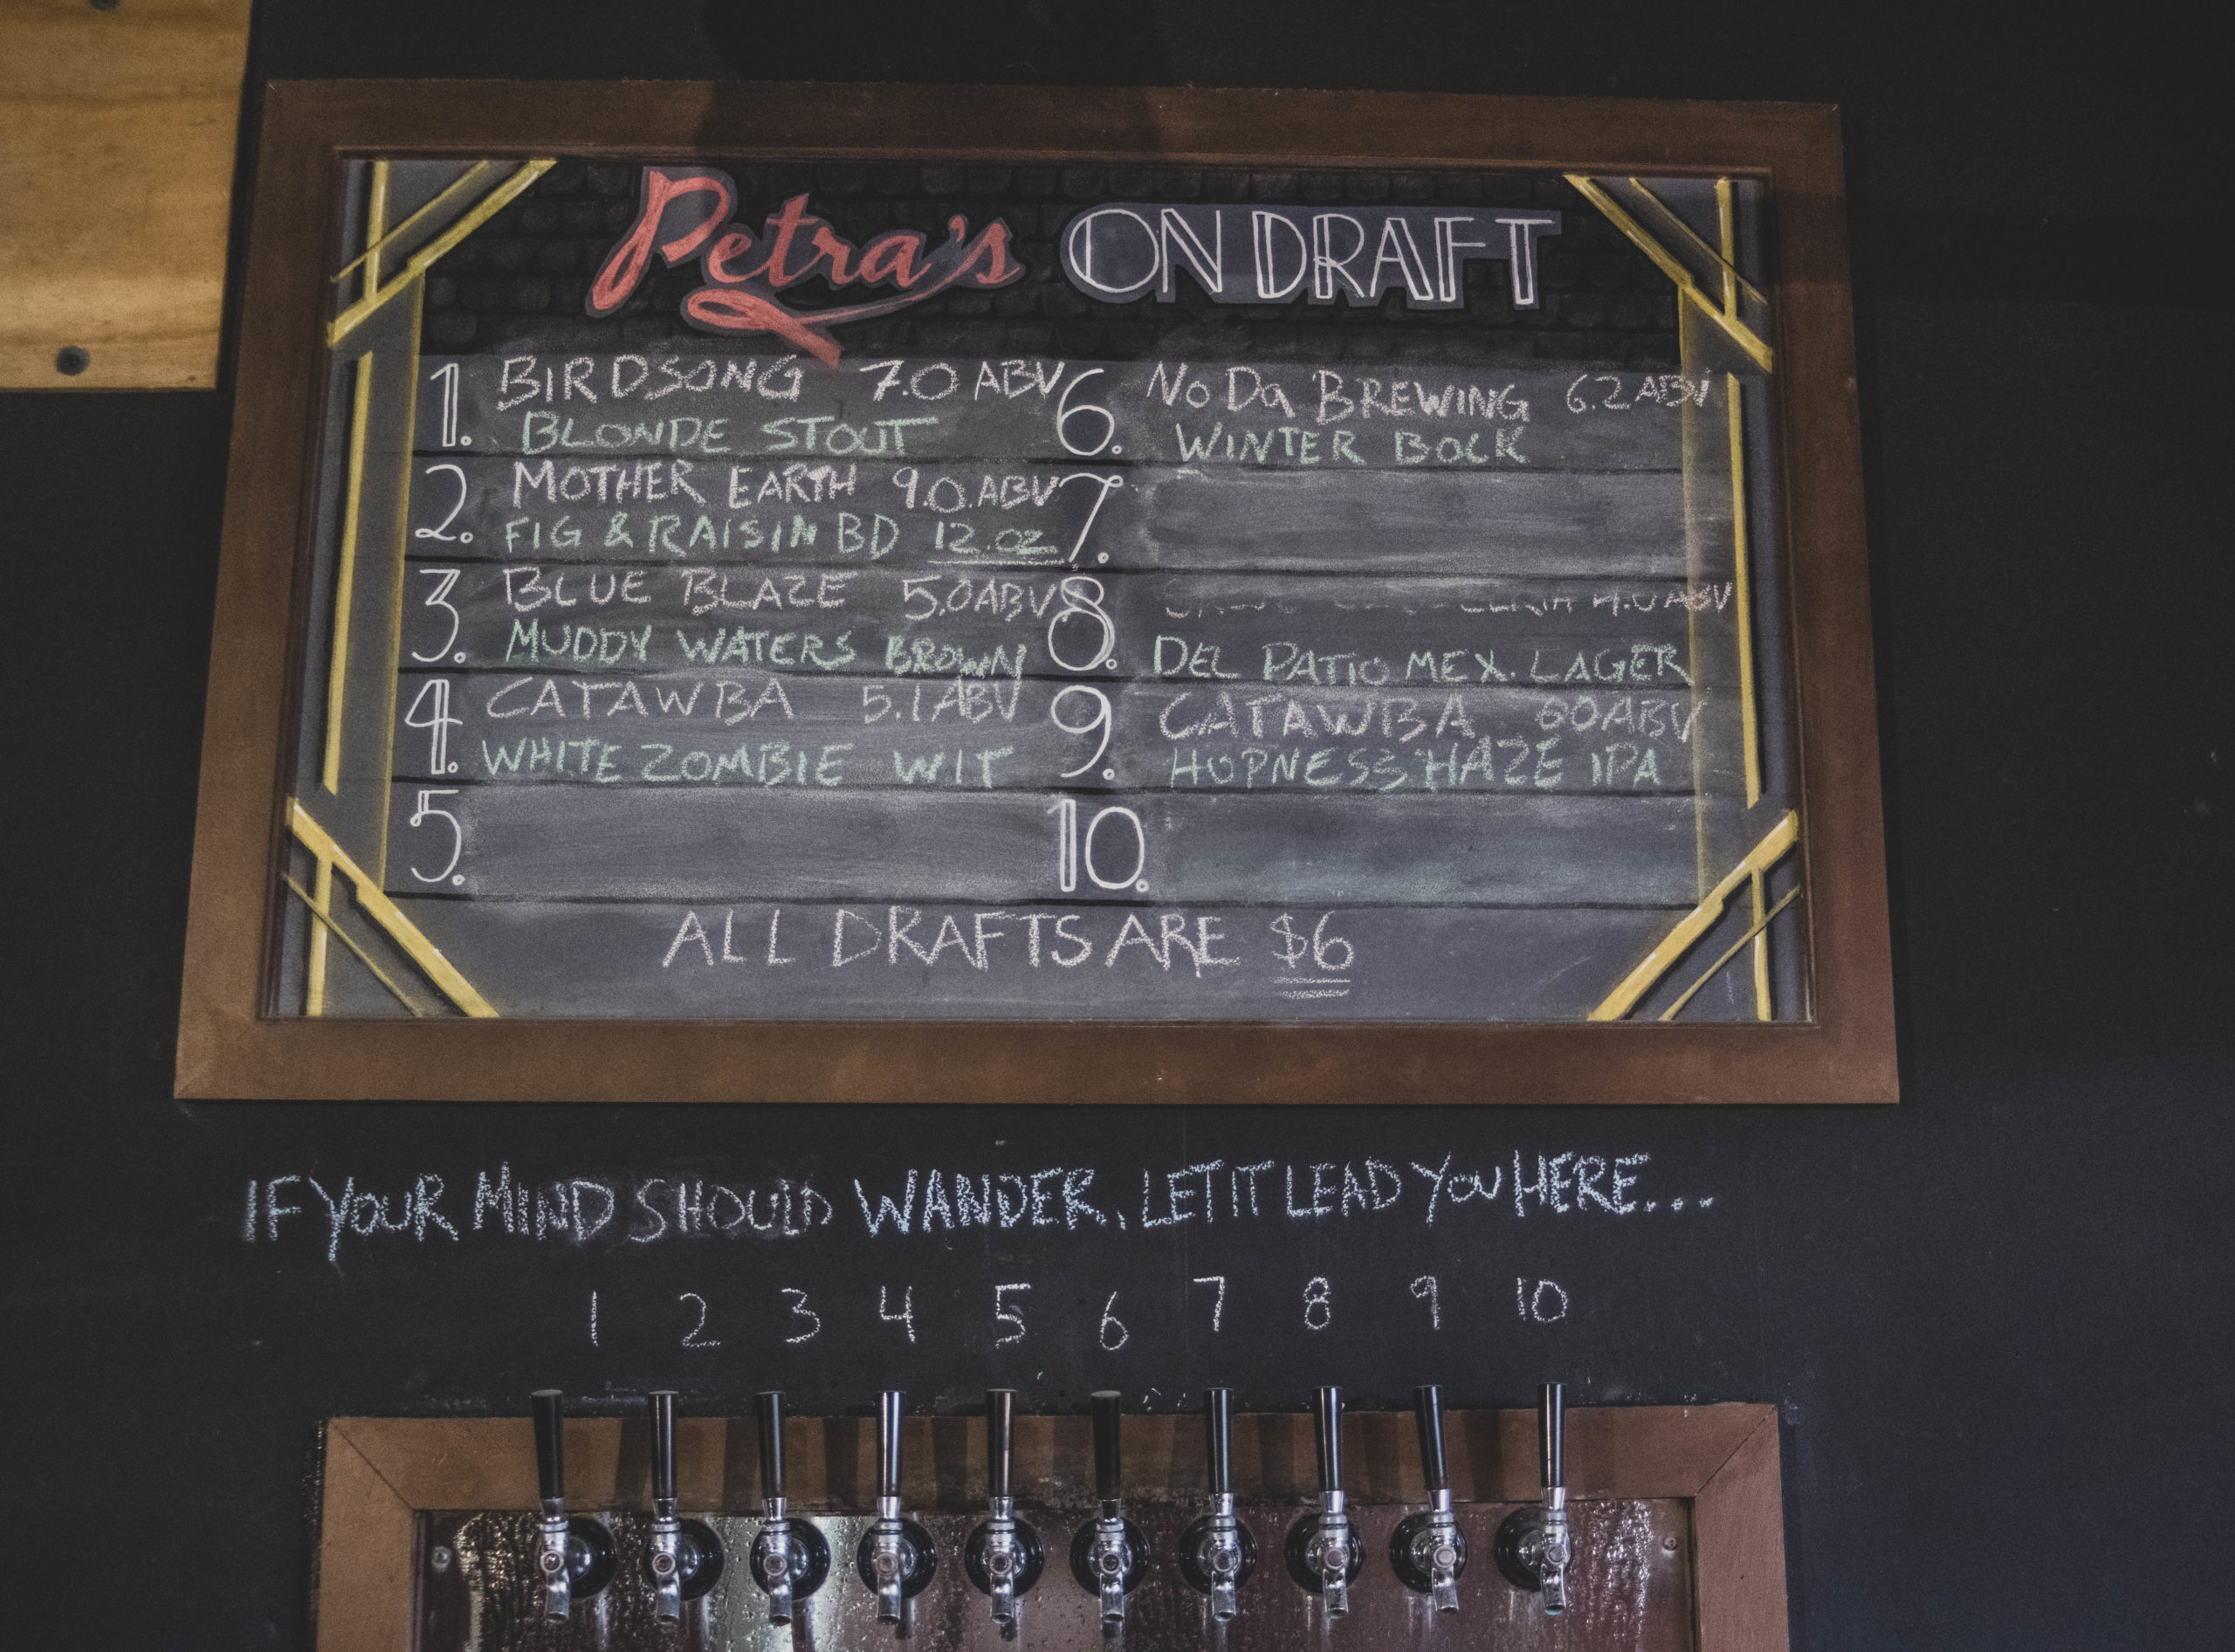 Petra's ON DRAFT
1. BIRDSONG 7.0 ABV
BLONDE STOUT
2. MOTHER EARTH 9.0.ABV
FIG & RAISIN BD 12.oz
3. BLUE BLAZE 5.0ABV
MUDDY WATERS BROWN
4. CATAWBA 5.1ABV
WHITE ZOMBIE WIT
5.
6. NoDa BREWING 6.2ABV
WINTER BOCK
7.
8. ABV
DEL PATIO MEX. LAGER
9. CATAWBA 60ABV
HOPNESS HAZE IPA
10.
ALL DRAFTS ARE $6
IF YOUR MIND SHOULD WANDER, LET IT LEAD YOU HERE...
1 2 3 4 5 6 7 8 9 10